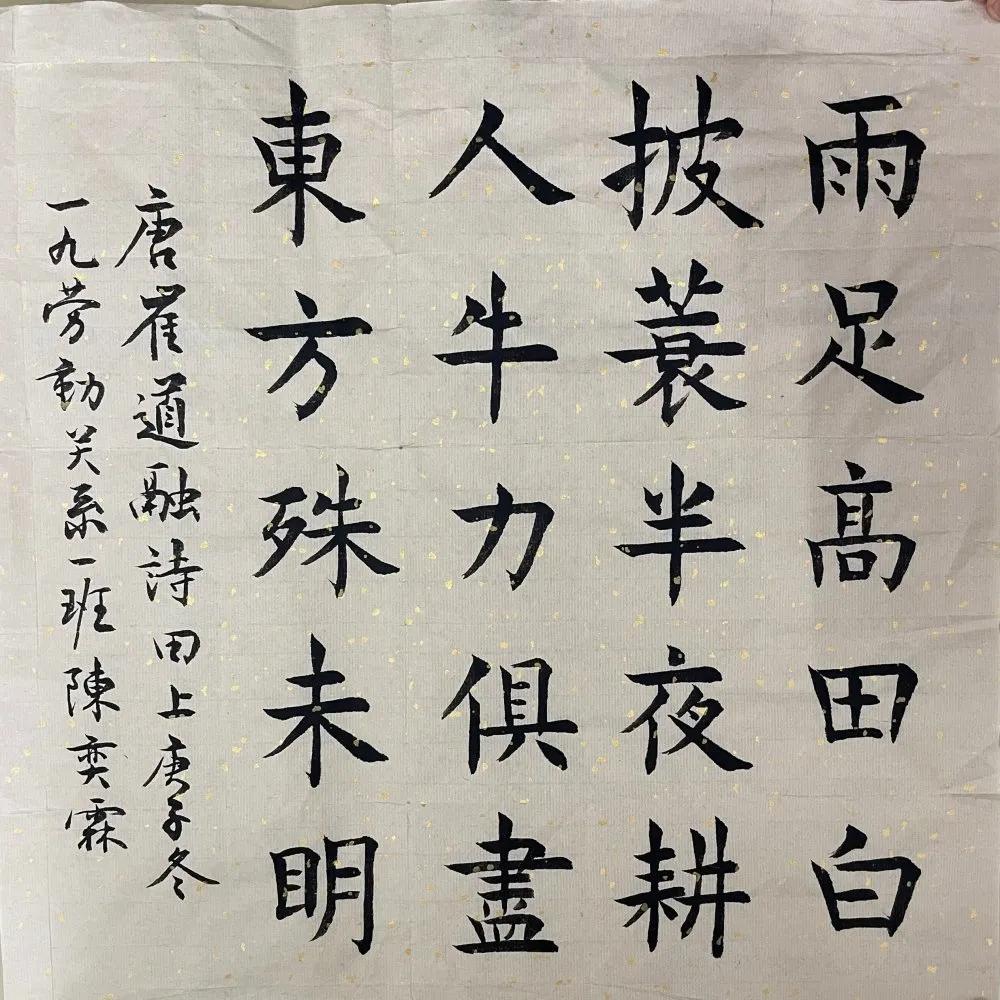 雨足高田白
披蓑半夜耕
人牛力俱盡
東方殊未明
唐崔道融詩田上庚子冬
一九劳動关系一班陳奕霖